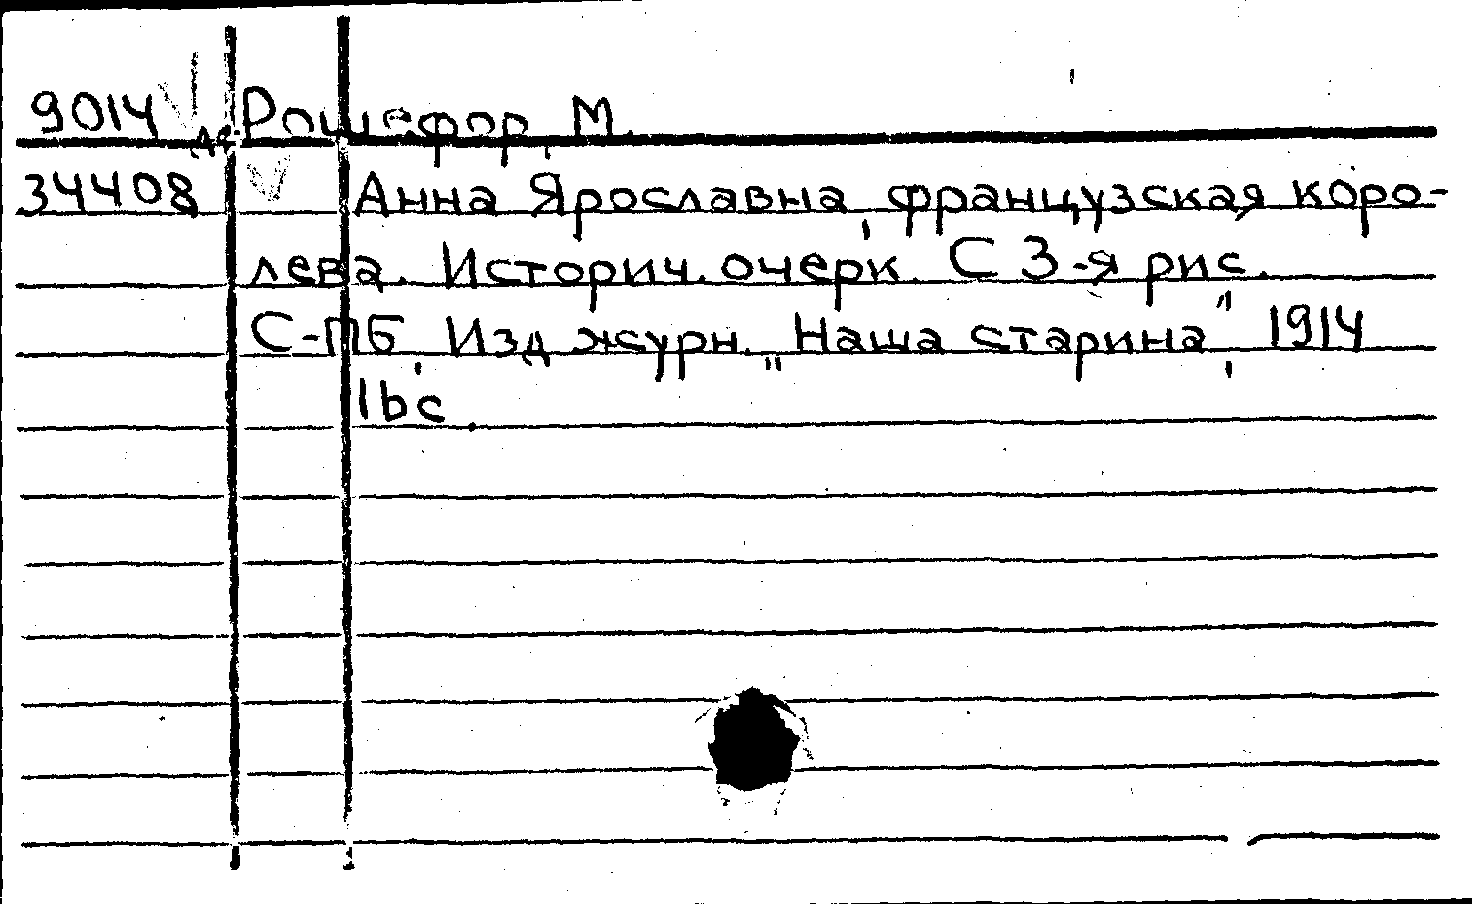 9014 де Рошефор, М.
34408 Анна Ярославна, французская коро-
лева. Историч. очерк. С 3-я рис.
С-ПБ, Изд журн. „Наша старина", 1914
16с.